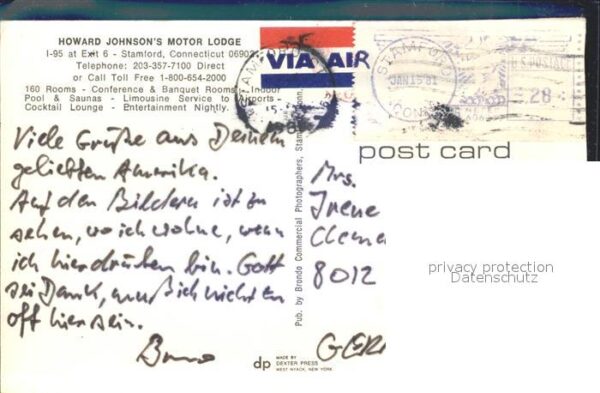 HOWARD JOHNSON'S MOTOR LODGE
I-95 at Exit 6 - Stamford, Connecticut 06902
Telephone: 203-357-7100 Direct
or Call Toll Free 1-800-654-2000
160 Rooms - Conference & Banquet Rooms - Indoor
Pool & Saunas - Limousine Service to Airports -
Cocktail Lounge - Entertainment Nightly.
VIA AIR
STAMFORD
JAN 15 '81
CONN
U.S. POSTAGE
28
post card
Viele Grüße aus Deinem
geliebten Amerika.
Auf den Bildern ist zu
sehen, wo ich wohne, wenn
ich hierdrüben bin. Gott
sei Dank, muß ich nicht zu
oft hier sein.
Bruno
Pub. by Brondo Commercial Photographers, Stam
Mrs.
Irene
Cleme
8012
GER
privacy protection
Datenschutz
dp
MADE BY
DEXTER PRESS
WEST NYACK, NEW YORK